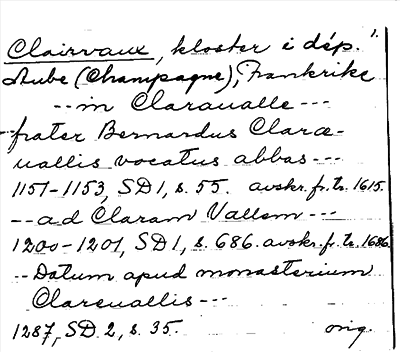 1.
Clairvaux, kloster i dép.
Aube (Champagne), Frankrike
--in Claraualle---
-frater Bernardus Claræ-
uallis vocatus abbas---
1151-1153, SD 1, s. 55. avskr. fr. tr. 1615.
--ad Claram Vallem---
1200-1201, SD 1, s. 686. avskr. fr. tr. 1686
--Datum apud monasterium
Clareuallis---
1287, SD 2, s. 35. orig.